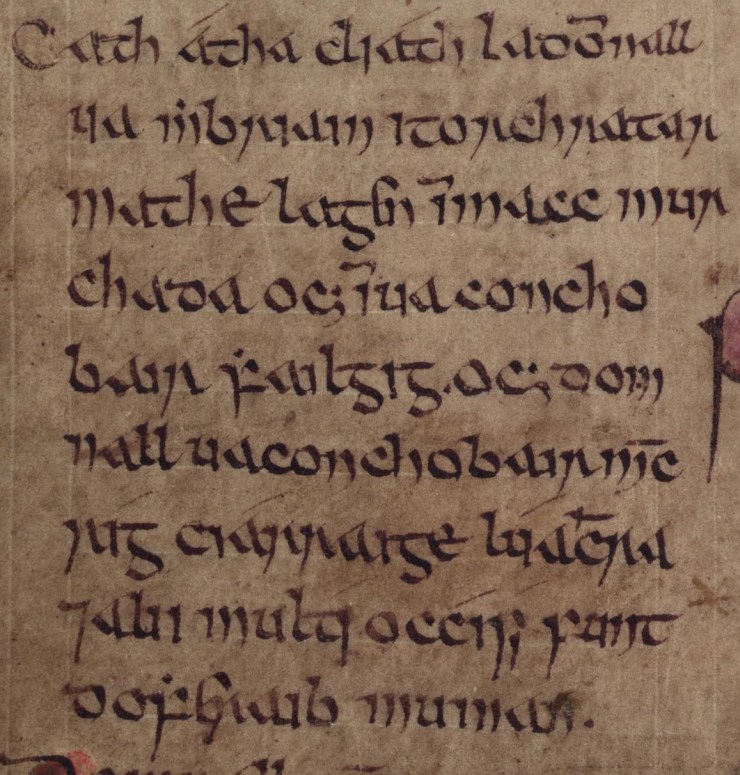 Cath átha cliath la dōnall
ua mbriain itorchratar
mathe lagēn īmmacc mur
chada oc; ī ua concho
bair ḟailgig. oc; dom
nall ua conchobair mc̄
rig ciarraige luac̄ra
⁊ alii multi occis; sunt
do ḟheraib muman.